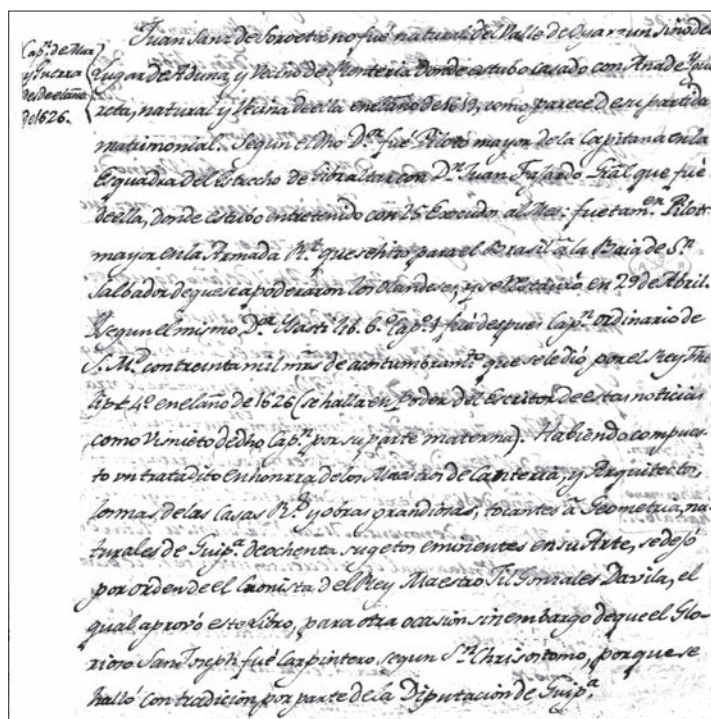 Capⁿ. de Mar
y Guerra
desde el año
de 1626.
Juan Sanz de Soroeta no fué natural del Valle de Oyarzun, sinó del
Lugar de Aduna, y Vecino de Renteria donde estubo casado con Ana de Yur
reta, natural y Vecina de ella en el año de 1619, como parece de su partida
matrimonial. Segun el dho D.ᵒʳ fué Piloto mayor de la Capitana en la
Esquadra del Estrecho de Gibraltar con Dⁿ. Juan Fajardo Gral que fué
de ella, donde estubo entretenido con 25 Escudos al Mes: fue tam.ᵉⁿ Piloto
mayor en la Armada R.ˡ que se hizo para el Brasil â la Baia de Sⁿ.
Salbador de que se apoderaron los Olandeses, y se restauró en 29 de Abril.
Segun el mismo D.ᵒʳ Ysasti Lib. 6.º Cap.º 1 fué despues Capⁿ. ordinario de
S. M.ᵈ con treinta mil mrs de acostumbram.ᵗᵒ que se le dió por el Rey Phe
lipe 4º en el año de 1626 (se halla en poder del Escritor de estas noticias
como Visnieto de dho Capⁿ. por su parte materna). Habiendo compues-
to un tratadito en honrra de los Maestros de Canteria, y Arquitectos,
lonmas, de las Casas R.ˢ y obras grandiosas, tocantes â Geometria, na-
turales de Guip.ᵃ de ochenta sugetos eminentes en su Arte, se dejó
por orden de el Cronista del Rey Maestro Gil Gonzales Davila, el
qual aprovó este Libro, para otra ocasion sin embargo de que el Glo-
rioso San Joseph fué Carpintero segun Sⁿ. Chrisostomo, porque se
halló contradicion por parte de la Diputación de Guip.ᵃ